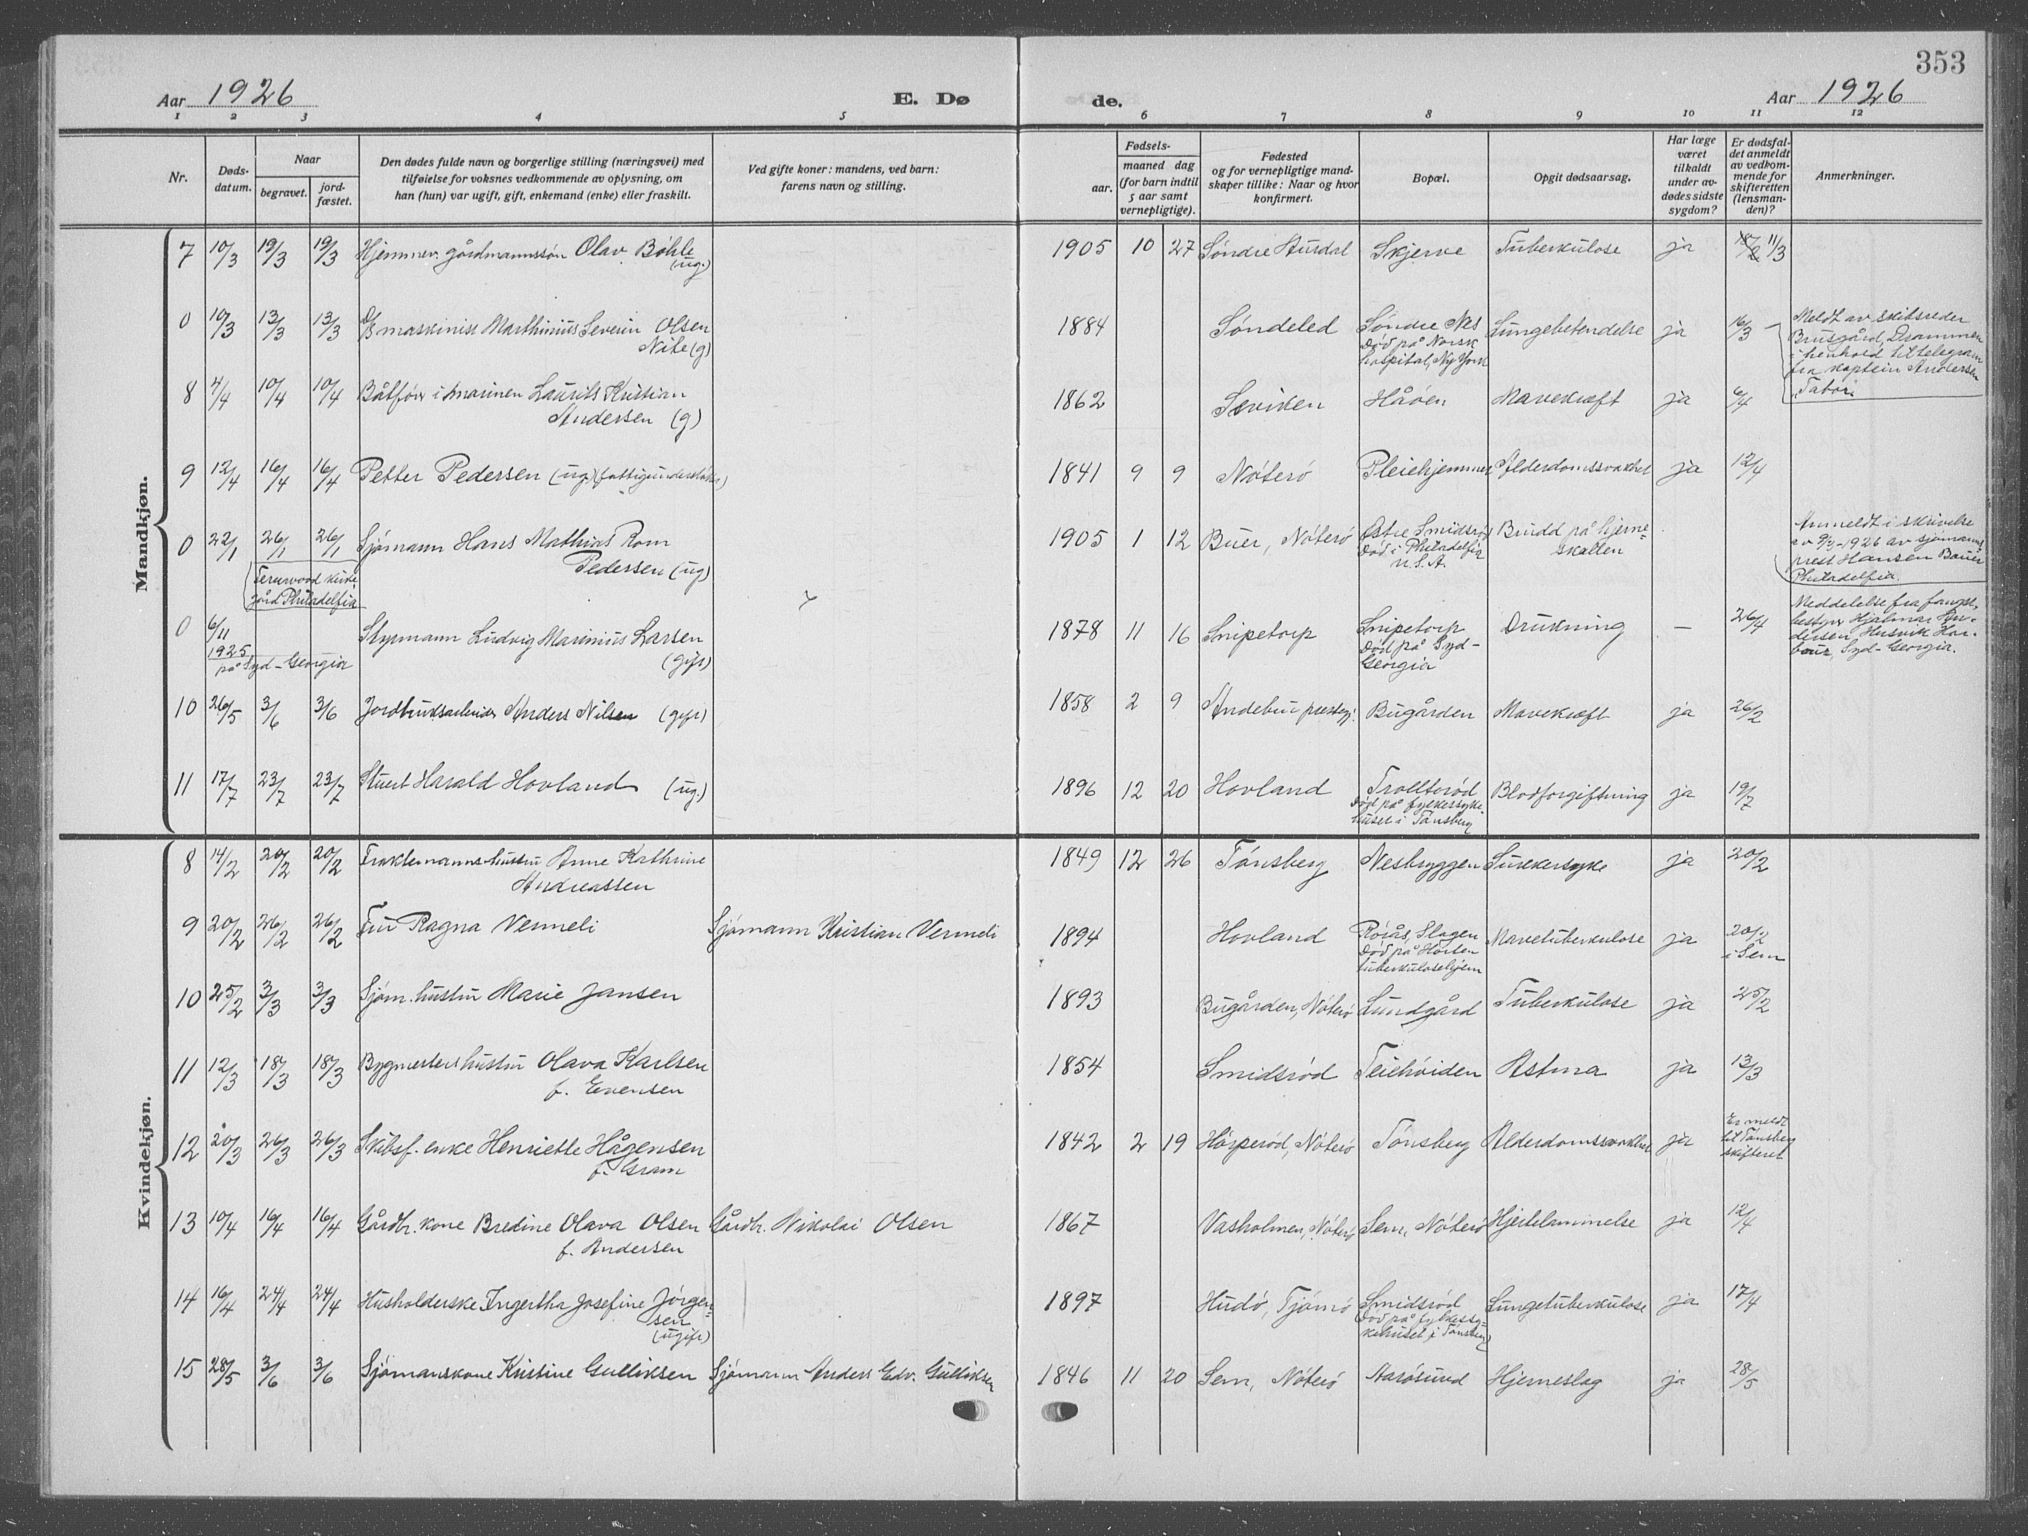 353
Aar 1926
E. Dø
de.
Aar 1926
1 2 3 4 5 6 7 8 9 10 11 12
Nr.
Døds-
datum.
Naar
begravet.
jord-
fæstet.
Den dødes fulde navn og borgerlige stilling (næringsvei) med
tilføielse for voksnes vedkommende av oplysning, om
han (hun) var ugift, gift, enkemand (enke) eller fraskilt.
Ved gifte koner: mandens, ved barn:
farens navn og stilling.
Fødsels-
aar.
maaned dag
(for barn indtil
5 aar samt
vernepligtige).
Fødested
og for vernepligtige mand-
skaper tillike: Naar og hvor
konfirmert.
Bopæl.
Opgit dødsaarsag.
Har læge
været
tilkaldt
under av-
dødes sidste
sygdom?
Er dødsfal-
det anmeldt
av vedkom-
mende for
skifteretten
(lensman-
den)?
Anmerkninger.
Mandkjøn.
7 10/3 19/3 19/3 Hjemmev. gårdmannssøn Olav Bøhle
(ug.)
1905 10 27 Søndre Aurdal Skjerve Tuberkulose ja 11/3
0 10/3 13/3 13/3 D/S maskinist Marthinius Severin Olsen
Nite (g)
1884 Søndeled Søndre Nes
Død på Norsk
hospital, Ny York
Lungebetendelse ja 16/3
Meldt av skibsreder
Brusgård, Drammen
i henhold til telegram
fra kaptein Andersen
"Tabor".
8 4/4 10/4 10/4 Båtfør. i marinen Laurits Kristian
Andersen (g)
1862 Leviken Håøen Mavekræft ja 6/4
9 12/4 16/4 16/4 Petter Pedersen (ug.) (fattigunderstøt.)
1841 9 9 Nøterø Pleiehjemmet Alderdomssvakhet ja 12/4
0 22/1 26/1 26/1 Sjømann Hans Mathias Rom
Pedersen (ug)
Fernwood kirke-
gård Philadelfia
1905 1 12 Buer, Nøterø Østre Smidsrød
Død i Philadelfia
U.S.A.
Brudd på hjerne-
skallen
Anmeldt i skrivelse
av 9/3-1926 av sjømanns-
prest Hansen Bauer
Philadelfia.
0 6/11
1925
på Syd-Georgia
Styrmann Ludvig Marinius Larsen
(gift)
1878 11 16 Snipetorp Snipetorp
Død på Syd-
Georgia
Drukning — 26/4
Meddelelse fra fangst-
bestyrer Hjalmar An-
dersen, Husvik Har-
bour, Syd-Georgia.
10 26/5 3/6 3/6 Jordbruksarbeider Anders Nilsen (gift)
1858 2 9 Andebu prestegj. Bugården Mavekræft ja 26/2
11 17/7 23/7 23/7 Stuert Harald Hovland (ug.)
1896 12 20 Hovland Trolterød
Død på fylkessyke-
huset i Tønsberg
Blodforgiftning ja 19/7
Kvindekjøn.
8 14/2 20/2 20/2 Fraktemannshustru Anne Kathrine
Andreassen
1849 12 26 Tønsberg Nesbryggen Sukkersyke ja 20/2
9 20/2 26/2 26/2 Fru Ragna Venneli Sjømann Kristian Venneli
1894 Hovland Røsås, Slagen
Død på Horten
tuberkulosehjem
Mavetuberkulose ja 20/2
i Sem
10 25/2 3/3 3/3 Sjøm. hustru Marie Jansen
1893 Bugården, Nøterø Lundgård Tuberkulose ja 25/2
11 12/3 18/3 18/3 Bygmestershustru Olava Karlsen
f. Evensen
1854 Smidsrød Teiehøiden Astma ja 13/3
12 20/3 26/3 26/3 Skibsf. enke Henriette Hågensen
f. Gram
1842 2 19 Høsperød, Nøterø Tønsberg Alderdomssvakhet ja Er meldt
til Tønsberg
skifteret
13 10/4 16/4 16/4 Gårdbr. kone Bredine Olava Olsen
f. Andersen
Gårdbr. Nikolai Olsen
1867 Vasholmen, Nøterø Sem, Nøterø Hjertelammelse ja 12/4
14 16/4 24/4 24/4 Husholderske Ingertha Josefine Jørgen-
sen
(ugift)
1897 Hudø, Tjømø Smidsrød
Død på fylkessy-
kehuset i Tønsberg
Lungetuberkulose ja 17/4
15 28/5 3/6 3/6 Sjømanskone Kristine Gulliksen Sjømann Anders Edv. Gulliksen
1846 11 20 Sem, Nøterø Aarøsund Hjerneslag ja 28/5